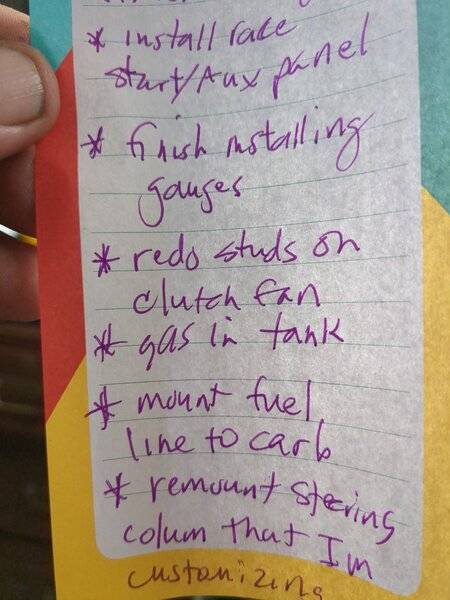 * install race
start/Aux panel
* finish installing
gauges
* redo studs on
clutch fan
* gas in tank
* mount fuel
line to carb
* remount stering
colum that Im
customizing